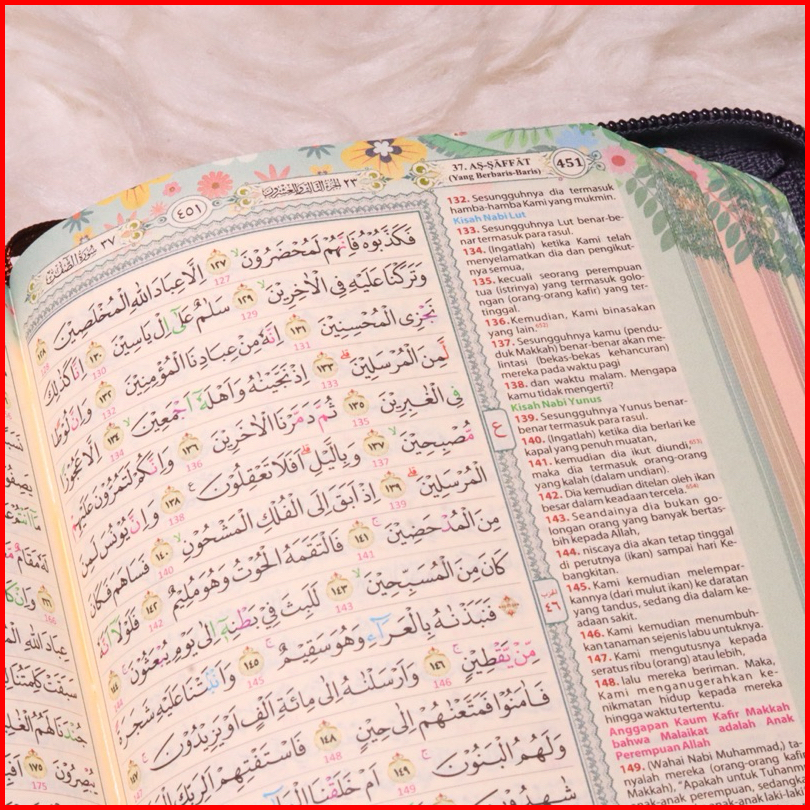 سورة الصافات ٣٧
٤٥١
٢٣ الجزء الثالث والعشرون
37. AṢ-ṢĀFFĀT
(Yang Berbaris-Baris)
451
فَكَذَّبُوْهُ فَاِنَّهُمْ لَمُحْضَرُوْنَۙ ١٢٧ 127 اِلَّا عِبَادَ اللّٰهِ الْمُخْلَصِيْنَ ١٢٨
وَتَرَكْنَا عَلَيْهِ فِى الْاٰخِرِيْنَۙ ١٢٩ 129 سَلٰمٌ عَلٰٓى اِلْ يَاسِيْنَ ١٣٠ 130 اِنَّا كَذٰلِكَ
نَجْزِى الْمُحْسِنِيْنَ ١٣١ 131 اِنَّهٗ مِنْ عِبَادِنَا الْمُؤْمِنِيْنَ ١٣٢ 132 وَاِنَّ لُوْطًا
لَّمِنَ الْمُرْسَلِيْنَۗ ١٣٣ 133 اِذْ نَجَّيْنٰهُ وَاَهْلَهٗٓ اَجْمَعِيْنَۙ ١٣٤ 134 اِلَّا عَجُوْزًا
فِى الْغٰبِرِيْنَ ١٣٥ 135 ثُمَّ دَمَّرْنَا الْاٰخَرِيْنَ ١٣٦ 136 وَاِنَّكُمْ لَتَمُرُّوْنَ عَلَيْهِمْ
مُّصْبِحِيْنَۙ ١٣٧ 137 وَبِالَّيْلِۗ اَفَلَا تَعْقِلُوْنَ ع ١٣٨ 138 وَاِنَّ يُوْنُسَ لَمِنَ
الْمُرْسَلِيْنَۗ ١٣٩ 139 اِذْ اَبَقَ اِلَى الْفُلْكِ الْمَشْحُوْنِۙ ١٤٠ 140 فَسَاهَمَ فَكَانَ
مِنَ الْمُدْحَضِيْنَۚ ١٤١ 141 فَالْتَقَمَهُ الْحُوْتُ وَهُوَ مُلِيْمٌ ١٤٢ 142 فَلَوْلَآ اَنَّهٗ
كَانَ مِنَ الْمُسَبِّحِيْنَۙ ١٤٣ 143 لَلَبِثَ فِيْ بَطْنِهٖٓ اِلٰى يَوْمِ يُبْعَثُوْنَۚ ١٤٤
۞ فَنَبَذْنٰهُ بِالْعَرَاۤءِ وَهُوَ سَقِيْمٌۚ ١٤٥ 145 وَاَنْۢبَتْنَا عَلَيْهِ شَجَرَةً
مِّنْ يَّقْطِيْنٍۚ ١٤٦ 146 وَاَرْسَلْنٰهُ اِلٰى مِائَةِ اَلْفٍ اَوْ يَزِيْدُوْنَۚ ١٤٧
فَاٰمَنُوْا فَمَتَّعْنٰهُمْ اِلٰى حِيْنٍ ١٤٨ 148 فَاسْتَفْتِهِمْ اَلِرَبِّكَ
وَلَهُمُ الْبَنُوْنَۚ ١٤٩ 149 اَمْ خَلَقْنَا
شٰهِدُوْنَ
ع
٤٦
132. Sesungguhnya dia termasuk
hamba-hamba Kami yang mukmin.
Kisah Nabi Lut
133. Sesungguhnya Lut benar-be-
nar termasuk para rasul.
134. (Ingatlah) ketika Kami telah
menyelamatkan dia dan pengikut-
nya semua,
135. kecuali seorang perempuan
tua (istrinya) yang termasuk golo-
ngan (orang-orang kafir) yang ter-
tinggal.
136. Kemudian, Kami binasakan
yang lain.⁶⁵²⁾
137. Sesungguhnya kamu (pendu-
duk Makkah) benar-benar akan me-
lintasi (bekas-bekas kehancuran)
mereka pada waktu pagi
138. dan waktu malam. Mengapa
kamu tidak mengerti?
Kisah Nabi Yunus
139. Sesungguhnya Yunus benar-
benar termasuk para rasul.
140. (Ingatlah) ketika dia berlari ke
kapal yang penuh muatan,
141. kemudian dia ikut diundi,⁶⁵³⁾
maka dia termasuk orang-orang
yang kalah (dalam undian).
142. Dia kemudian ditelan oleh ikan
besar dalam keadaan tercela.⁶⁵⁴⁾
143. Seandainya dia bukan go-
longan orang yang banyak bertas-
bih kepada Allah,
144. niscaya dia akan tetap tinggal
di perutnya (ikan) sampai hari Ke-
bangkitan.
145. Kami kemudian melempar-
kannya (dari mulut ikan) ke daratan
yang tandus, sedang dia dalam ke-
adaan sakit.
146. Kami kemudian menumbuh-
kan tanaman sejenis labu untuknya.
147. Kami mengutusnya kepada
seratus ribu (orang) atau lebih,
148. lalu mereka beriman. Maka,
Kami menganugerahkan ke-
nikmatan hidup kepada mereka
hingga waktu tertentu.
Anggapan Kaum Kafir Makkah
bahwa Malaikat adalah Anak
Perempuan Allah
149. (Wahai Nabi Muhammad,) ta-
nyalah mereka (orang-orang kafir
Makkah), "Apakah untuk Tuhanmu
anak-anak perempuan, sedangkan